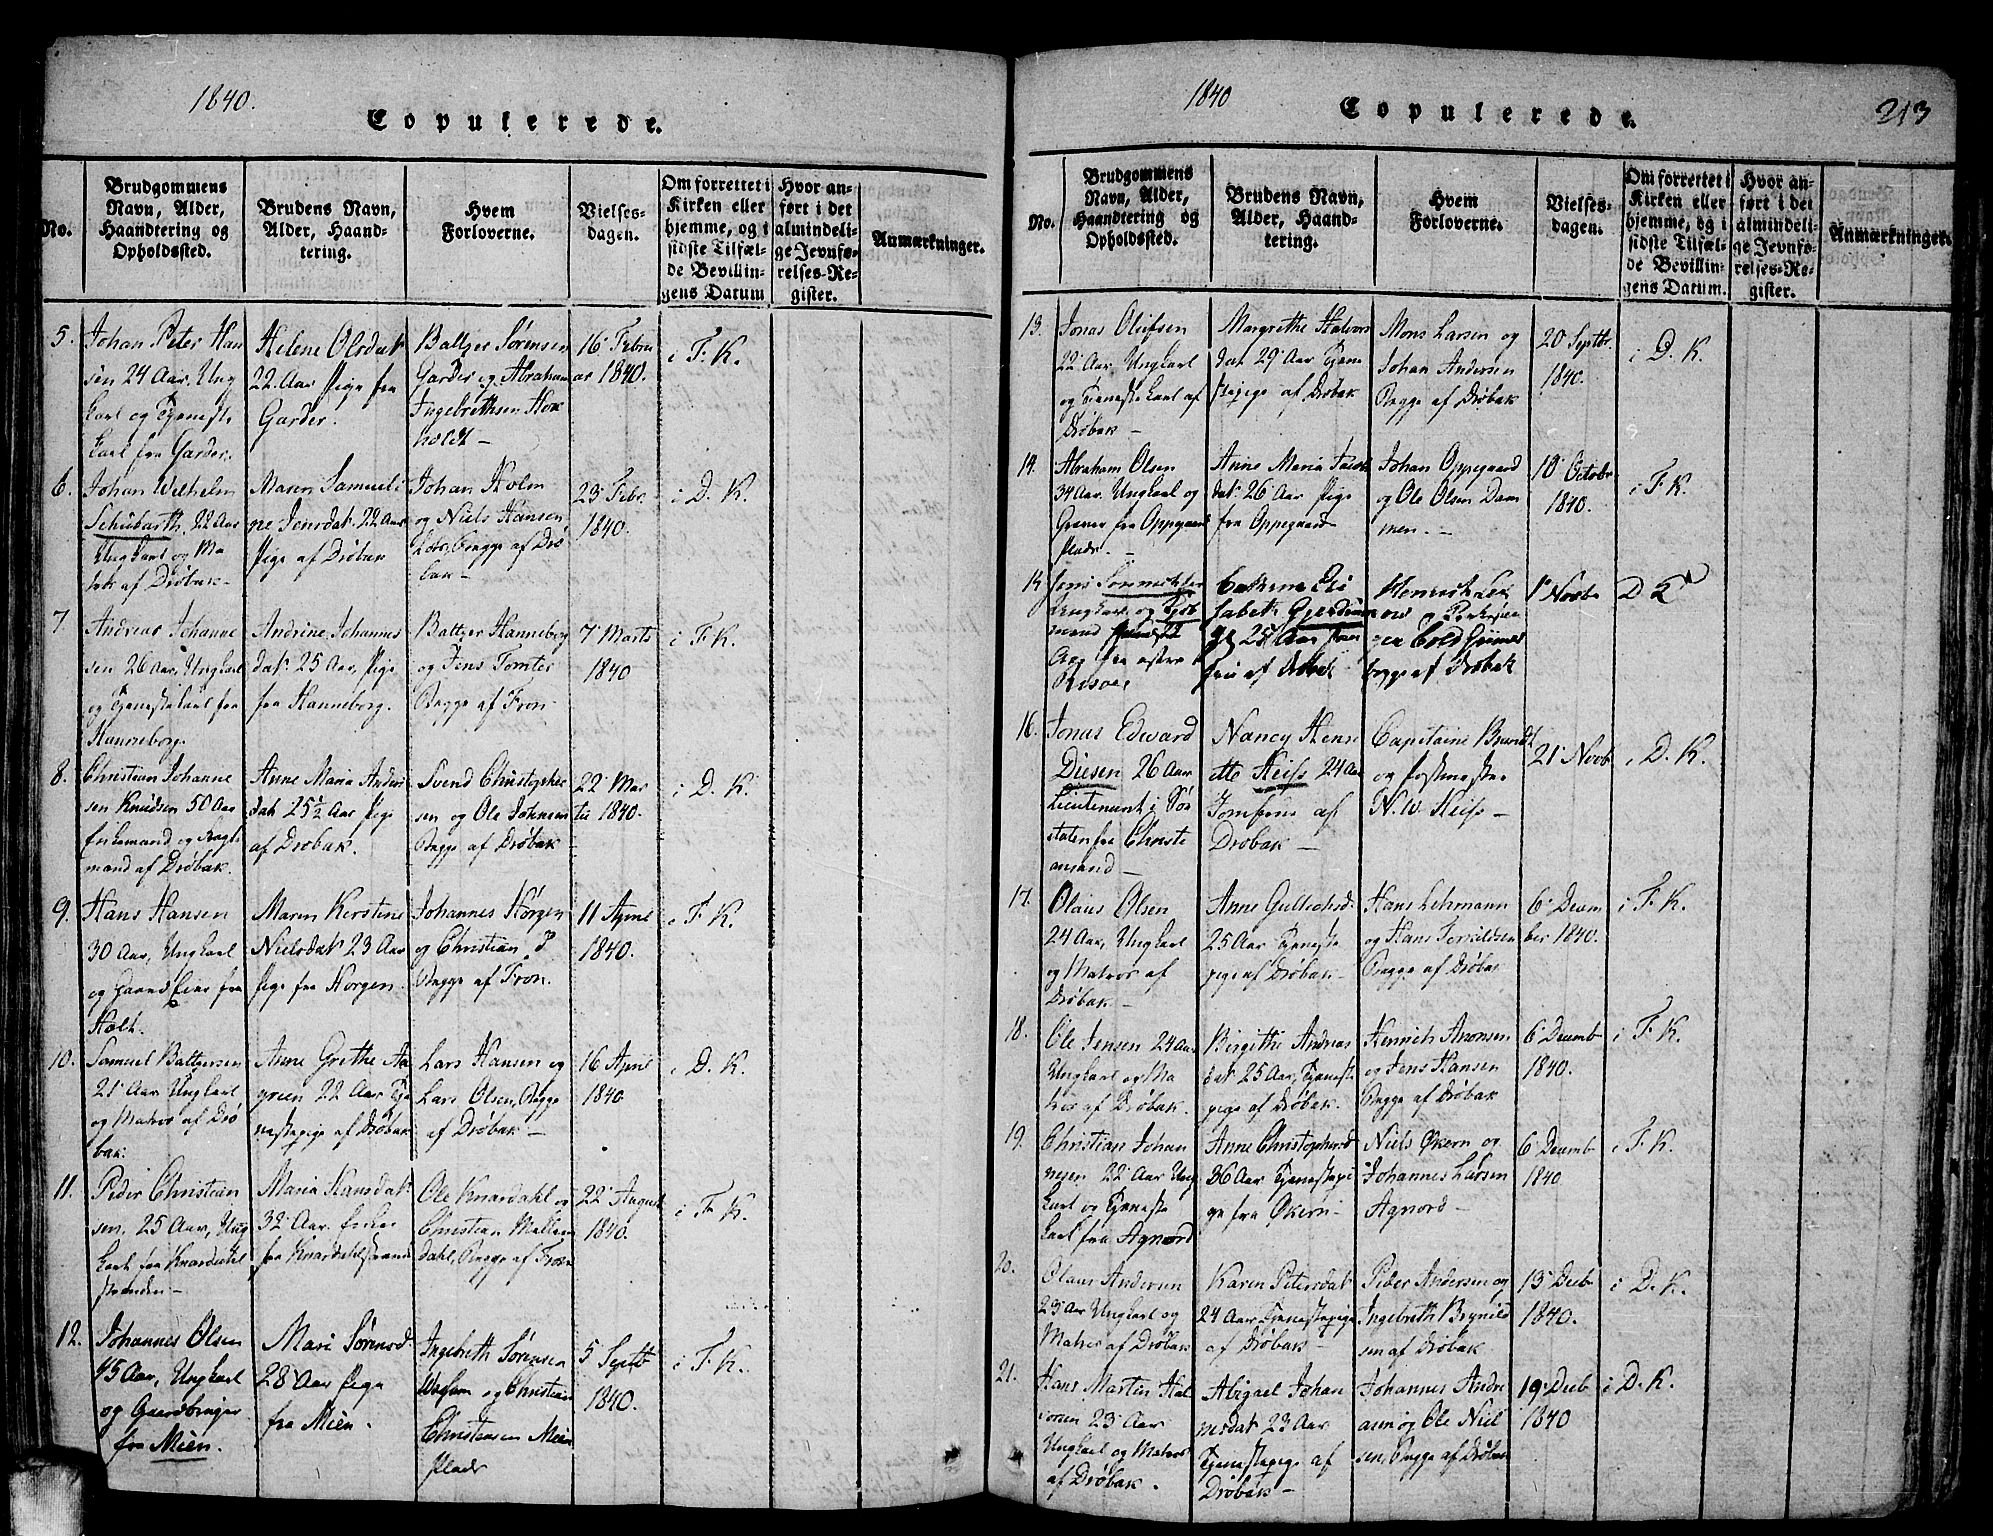 1840.
Copulerede.
No.
Brudgommens Navn, Alder, Haandtering og Opholdssted.
Brudens Navn, Alder, Haandtering.
Hvem Forloverne.
Vielsesdagen.
Om forrettet i Kirken eller hjemme, og i sidste Tilfælde Bevillingens Datum
Hvor anført i det almindelige Jevnførelses-Register.
Anmærkninger.
5.
Johan Peter Han
sen 24 Aar, Ung
karl og Tjeneste
karl fra Garder.
Helene Olsdat
22. Aar Pige fra
Garder.
Baltzer Sørensen
Garder og Abraham
Ingebrethsen Hok
holdt -
16 Febru
ar 1840.
i F. K.
6.
Johan Wilhelm
Schubarth, 22 Aar
Ungkarl og Ma
af Drøbak.
Maren Samueli
ne Jensdat. 22 Aar
Pige af Drøbak
Johan Holm
og Niels Hansen
Begge af Drø
bak -
23 Febr.
1840.
i D. K.
7
Andreas Johanne
sen 26 Aar, Ungkarl
og Tjenestekarl fra
Hanneborg.
Andrine Johannes
dat: 25 Aar, Pige
fra Hanneborg.
Baltzer Hanneborg
og Jens Tomter
Begge af Fron
7 Marts
1840
i F. K.
8.
Christian Johanne
sen Knudsen 50 Aar
Enkemand og
mand af Drøbak.
Anne Maria Anders
dat 25 1/2 Aar Pige
af Drøbak.
Svend Christopher
sen og Ole Johnsen
Begge af Drøbak
22 Mar
ts 1840.
i D. K.
9.
Hans Hansen
30 Aar, Ungkarl
og fra
Holt.
Maren Kerstine
Nielsdat 23 Aar
Pige fra Horgen.
Johannes Hørgen
og Christian
Begge af Fron.
11 April
1840.
i F. K.
10.
Samuel Baltzersen
21 Aar Ungkarl
og Matros af Drø
bak.
Anne Grethe Aa
green 22 Aar Tje
nestepige af Drøbak
Lars Hansen og
Lars Olsen, Begge
af Drøbak -
16 April
1840
i D. K.
11.
Peder Christian
sen. 25 Aar, Ung
karl fra Knardahl
stranden -
Maria Hansdat
32 Aar. Enke
fra Knardahlstrand
Ole Knardahl og
Christian Mellem
dahl, Begge af Fron
22 August
1840.
i F. K.
12.
Johannes Olsen
45 Aar, Ungkarl
og Gaardbruger
fra Mien.
Mari Sørensd.
28 Aar Pige
fra Mien.
Ingebreth Sørensen
og Christian
Christensen Mien
Plads
5 Septb
1840.
i F. K.
1840
Copulerede.
213
No.
Brudgommens Navn, Alder, Haandtering og Opholdssted.
Brudens Navn, Alder, Haandtering.
Hvem Forloverne.
Vielsesdagen.
Om forrettet i Kirken eller hjemme, og i sidste Tilfælde Bevillingens Datum.
Hvor anført i det almindelige Jevnførelses-Register.
Anmærkninger.
13.
Jonas Olufsen
22 Aar, Ungkarl
og Tjenestekarl af
Drøbak -
Margrethe Halvors
dat 29 Aar Tjene
stepige af Drøbak
Mons Larsen og
Johan Andersen
Begge af Drøbak
20 Septbr.
1840.
i D. K.
14.
Abraham Olsen
34 Aar. Ungkarl og
Graver fra Oppegaard
Plads. -
Anne Maria Jacobs
dat: 26 Aar Pige
fra Oppegaard
Johan Oppegaard
og Ole Olsen Dam
men. -
10 Octobr
1840.
i F. K.
Jens
Ungkarl og Kjøb
mand
Aar fra østre
Risøer
Cathrine Eli
sabeth
25 Aar
af Drøbak
Henrich
og
begge af Drøbak
1 Novb
D K
16.
Jonas Edward
Diesen 26 Aar
Lieutenant i Søe
taten fra Christi
ansand -
Nancy Hensi
ette Keiss 24 Aar
Jomfrue af
Drøbak -
Capitaine Brandt
og Postmester
N. W. Keiss -
21 Novb
i D. K.
17.
Olaus Olsen
24 Aar, Ungkarl
og Matros af
Drøbak -
Anne Gulliksd.
25 Aar Tjeneste
pige af Drøbak -
Hans Lehmann
og Hans
Begge af Drøbak
6 Decem
ber 1840.
i F. K.
18.
Ole Jensen 24 Aar
Ungkarl og Ma
tros af Drøbak.
Birgithe Andreas
dat 25 Aar, Tjeneste
pige af Drøbak.
Henrich Aronsen
og Jens Hansen
Begge af Drøbak
6 Decemb
1840.
i F. K.
19.
Christian Johan
nesen 22 Aar Ung
karl og Tjeneste
karl fra Agnord
Anne Christophersd
36 Aar Tjenestepi
ge fra Økern -
Niels Økern og
Johannes Larsen
Agnord -
6 Decemb
1840
i F. K.
20.
Olaus Andersen
23 Aar Ungkarl og
Matros af Drøbak
Karen Petersdat
24 Aar Tjenestepige
af Drøbak -
Peder Andersen og
Ingebreth Brynild
sen af Drøbak
13 Decb
1840.
i D. K.
21.
Hans Martin Hal
vorsen 23 Aar
Ungkarl og Matros
af Drøbak.
Abigael Johan
nesdat 23 Aar
Tjenestepige af
Drøbak -
Johannes Andre
asen og Ole Niel
sen, Begge af Drøbak
19 Decb
1840
i D. K.